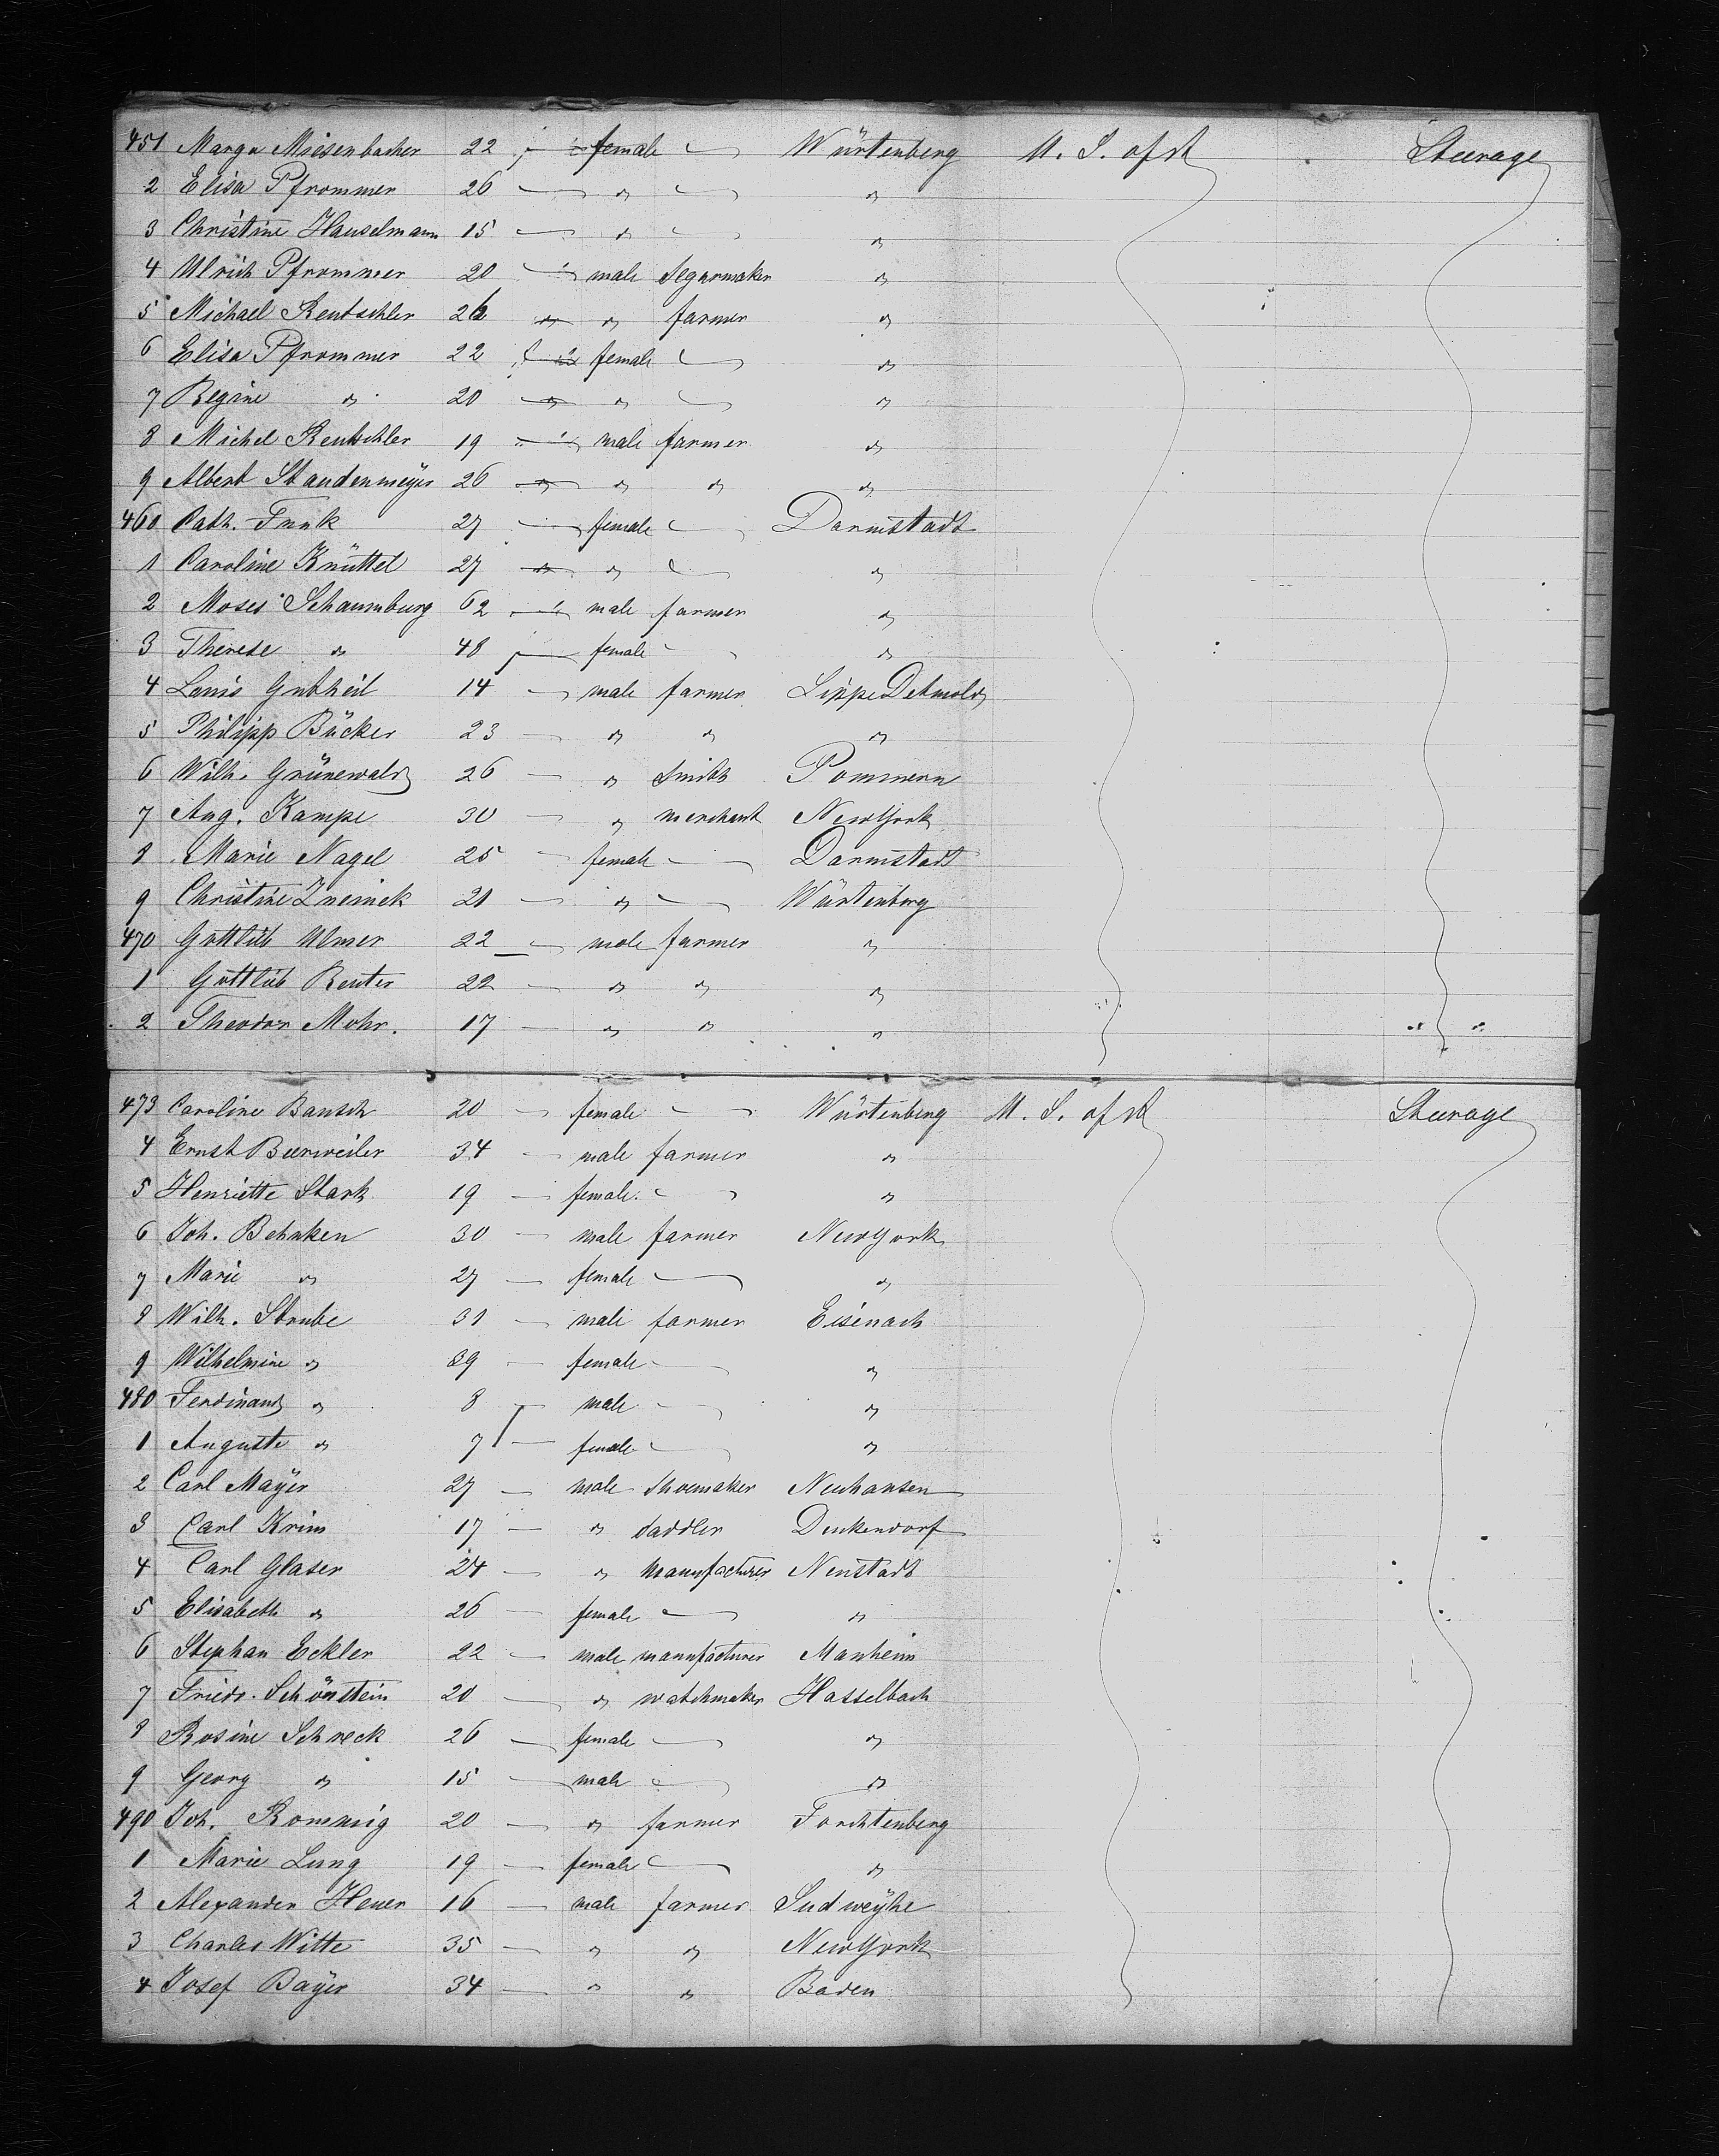 451 Marga Miesenbacher 22 — female — Würtenberg U. S. of A Steerage
2 Elisa Pfrommer 26 — " — "
3 Christine Hauselmann 15 — " — "
4 Ulrich Pfrommer 20 — male Segarmaker "
5 Michael Rentschler 26 " " farmer "
6 Elisa Pfrommer 22 — female — "
7 Regine " 20 " " — "
8 Michel Rentschler 19 — male farmer "
9 Albert Staudenmeÿer 26 " " " "
460 Cath. Funk 27 — female — Darmstadt
1 Caroline Knüttel 27 " " — "
2 Moses Schaumburg 62 — male farmer "
3 Therese " 48 — female — "
4 Louis Gutheil 14 — male farmer Lippe Detmold
5 Philipp Bücker 23 — " " "
6 Wilh. Grünewald 26 — " Smith Pommern
7 Aug. Kampe 30 — " merchant NewYork
8 Marie Nagel 25 — female — Darmstadt
9 Christine 21 — " — Würtenberg
470 Gottlieb Ulmer 22 — male farmer "
1 Gottlieb Reuter 22 — " " "
2 Theodor Mohr. 17 — " " "
473 Caroline Bausch 20 — female — Würtenberg U. S. of A Steerage
4 Ernst Beerweiler 34 — male farmer "
5 Henriette Stark 19 — female — "
6 Joh. Behnken 30 — male farmer NewYork
7 Marie " 27 — female — "
8 Wilh. Strube 31 — male farmer Eisenach
9 Wilhelmine " 39 — female — "
480 Ferdinand " 8 — male — "
1 Auguste " 7 — female — "
2 Carl Maÿer 27 — male Shoemaker Neuhausen
3 Carl Krim 17 — " Saddler Denkendorf
4 Carl Glaser 24 — " manufacturer Neustadt
5 Elisabeth " 26 — female — "
6 Stephan Eckler 22 — male manufacturer Manheim
7 Friedr. Schönstein 20 — " watchmaker Hasselbach
8 Rosine Schreck 26 — female — "
9 Georg " 15 — male — "
490 Joh. Rommig 20 — " farmer Forchtenberg
1 Marie Lung 19 — female — "
2 Alexander Heuer 16 — male farmer Sudweÿhe
3 Charles Witte 35 — " " NewYork
4 Josef Baÿer 34 — " " Baden